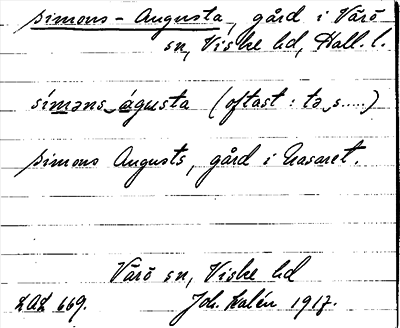 simons-Augusta, gård i Värö
sn, Viske hd, Hall. l.
símǝns‿águsta (oftast: tǝ‿s.....)
simons Augusts, gård i Nasaret.
Värö sn, Viske hd
LAL 669. Joh. Kalén 1917.